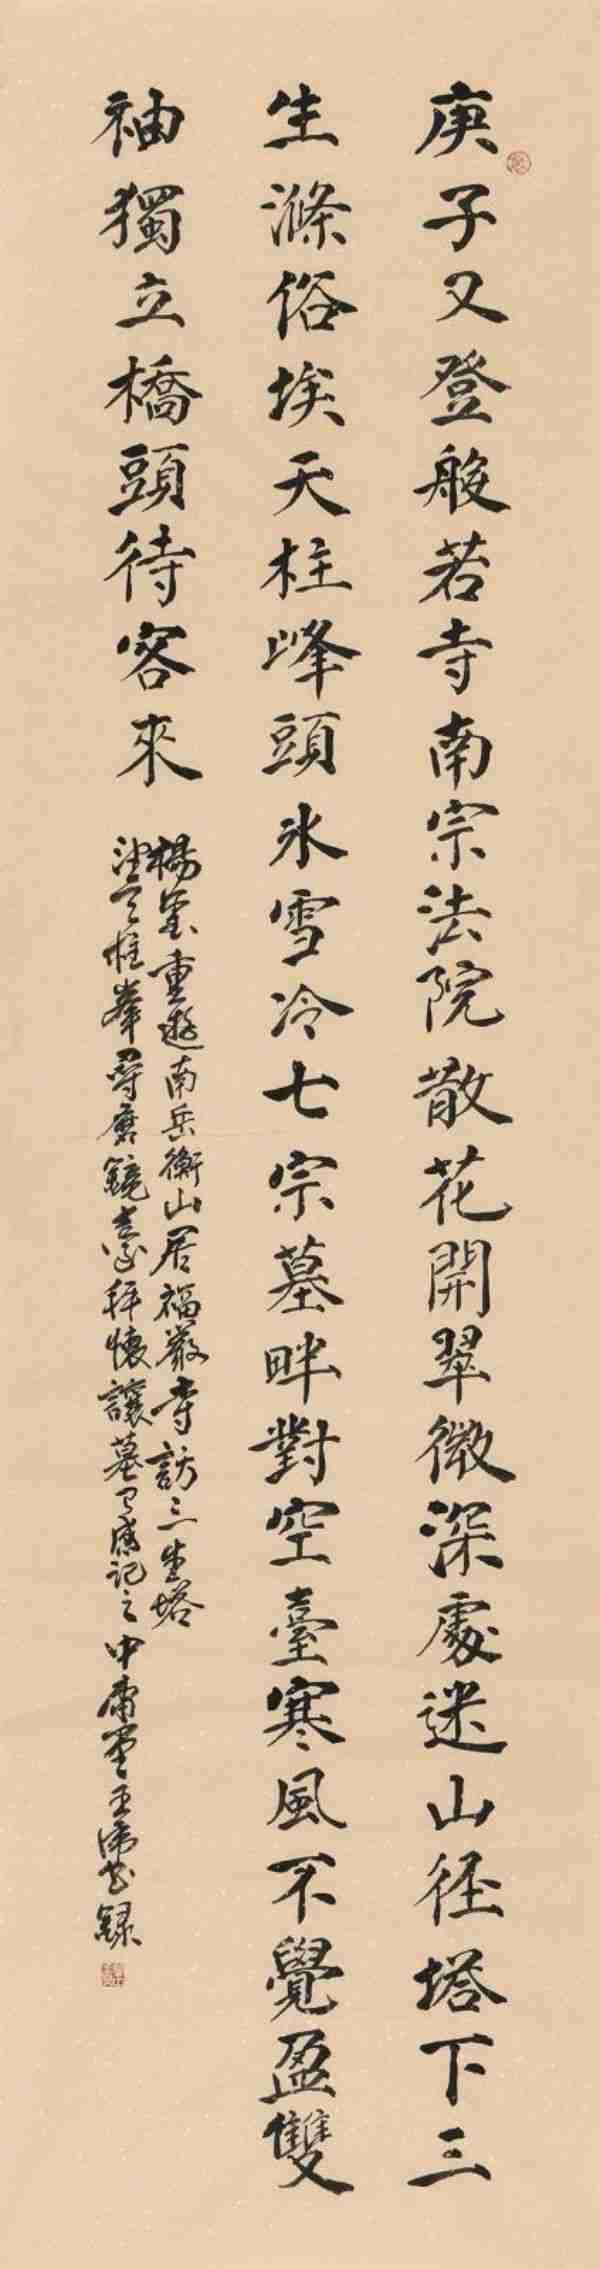 庚子又登般若寺南宗法院散花開翠微深處迷山徑塔下三
生滌俗埃天柱峰頭氷雪冷七宗墓畔對空臺寒風不覺盈雙
袖獨立橋頭待客來
楊 重遊南岳衡山居福嚴寺訪三生塔
天柱峯尋磨鏡臺拜懷讓墓有感記之中庸堂王 書錄